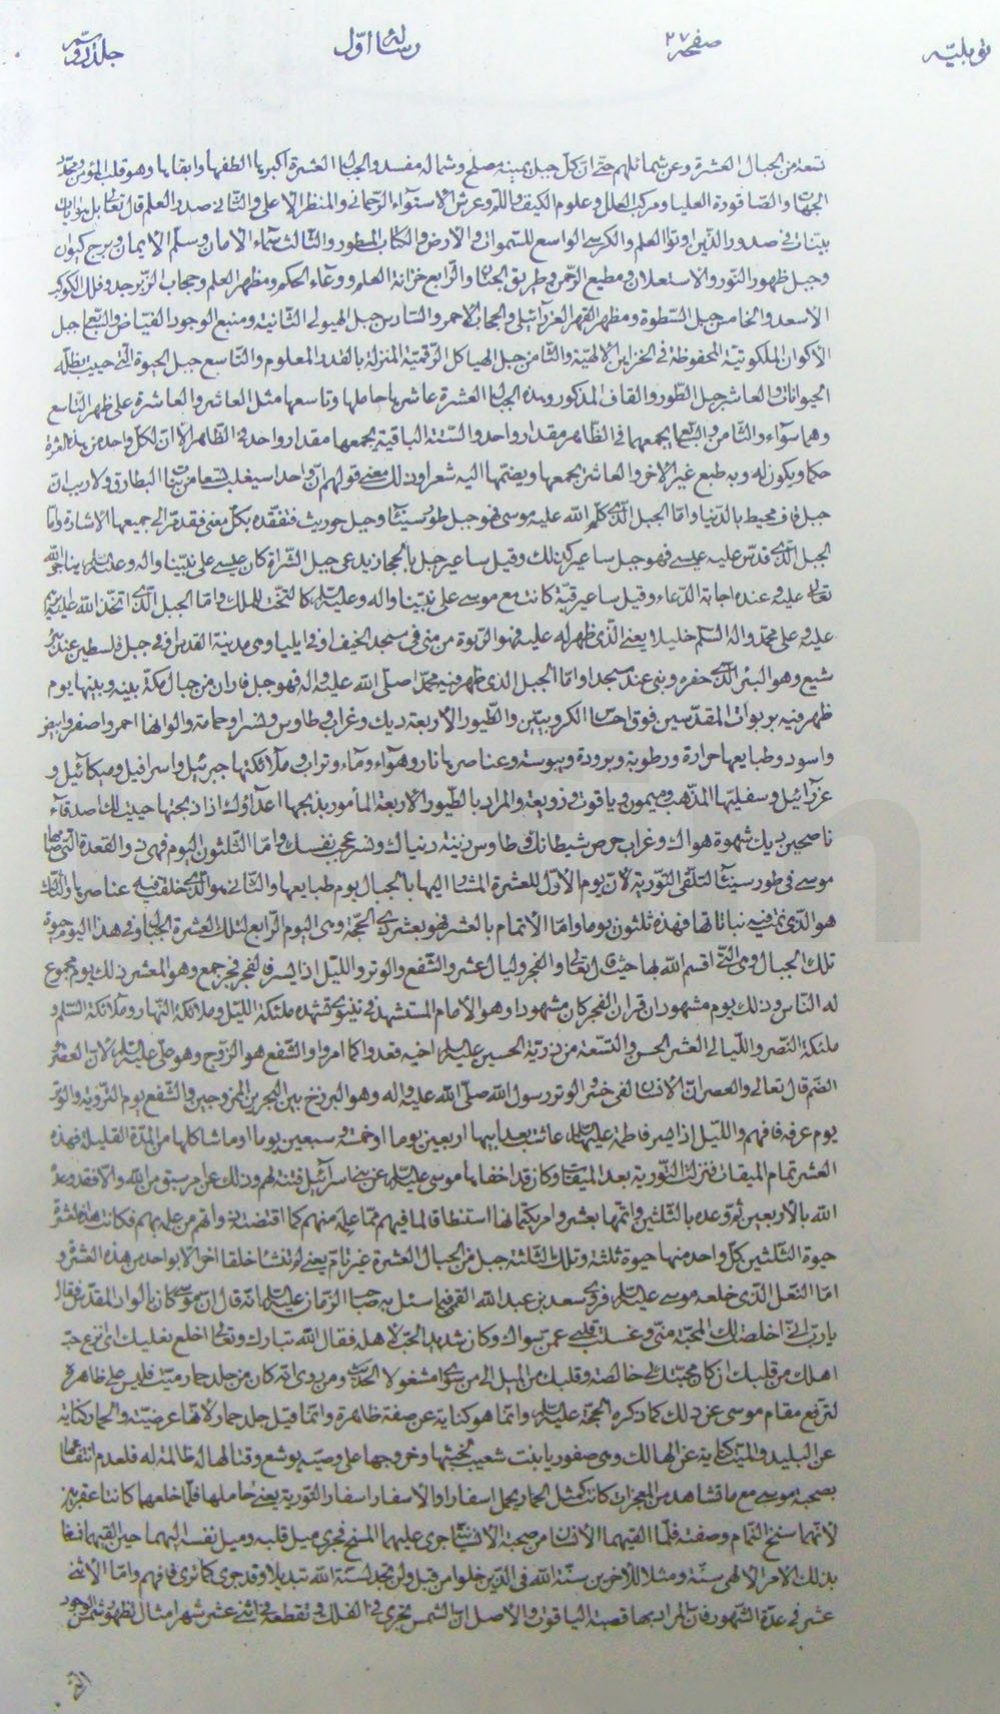 توبلیّه صفحه ۲۷ رساله اوّل جلد دویّم
تسعة من الجبال العشرة وعن شمائلهم حتّى انّ كلّ جبل يمينه مصلح وشماله مفسد والجبال العشرة اكبرها الطفها وابقاها وهو قلب المؤمن
الجهات والصاقورة العليا ومركب العلل وعلوم الكيف واللّم وعرش الاستواء الرّحماني والمنظر الاعلى والثاني صدر العلم قال تعالى بل هو ايات
بيّنات في صدور الذين اوتوا العلم والكرسي الواسع للسّموات والارض والكتاب المسطور والثالث سماء الامان وسلّم الايمان وبرج كيوان
وجبل ظهور النّور والاستعلان ومطيع الرّحمن وطريق الجنان والرّابع خزانة العلم ووعاء الحكم ومظهر العلم وحجاب الزّبرجد وفلك الكوكب
الاسعد والخامس جبل السّطوة ومظهر القهر العزرآئيلي والحجاب الاحمر والسّادس جبل الهيولى الثّانية ومنبع الوجود الفيّاض والسّابع جبل
الاكوان الملكوتيّة المحفوظة في الخزاين الالهيّة والثّامن جبل الهياكل الرّقميّة المنزلة بالقدر المعلوم والتّاسع جبل الحيوة الّتي حييت بظلّه
الحيوانات والعاشر جبل الطّور والقاف المذكور وهذه الجبال العشرة عاشرها حاملها وتاسعها مثل العاشر والعاشرة على ظهر التاسع
وهما سوآء والثّامن والسّابع يجمعهما في الظّاهر مقدار واحد والسّتّة الباقية يجمعها مقدار واحد في الظّاهر الّا انّ لكلّ واحد من هذه العشرة
حكما ويكون له وبه طبع غير الاخر والعاشر يجمعها ويضمّها اليه شعر اوذلك معنى قولهم انّ واحدا سيغلب تسعا من بنات البطارق ولا ريب انّ
جبل قاف محيط بالدّنيا وامّا الجبل الّذي كلّم الله عليه موسى فهو جبل طور سيناء وجبل حوريث فتفقّده بكلّ معنى فقد مرّ الى جميعها الاشارة وامّا
الجبل الّذي قدّس عليه عيسى فهو جبل ساعير كذلك وقيل ساعير جبل بالحجاز يدعى جبل الشّراة كان عيسى على نبيّنا واله وعليه السّلم يناجي الله
تعالى عليه وعنده اجابة الدّعاء وقيل ساعير قبّة كانت مع موسى على نبيّنا واله وعليه السّلم كالتّخت للملك وامّا الجبل الّذي اتّخذ الله عليه ابرهيم
عليه وعلى محمّد واله السّلم خليلا يعني الّذي ظهر له عليه فهو الرّبوة من منى في مسجد الخيف او في ايليا وهى مدينة القدس او في جبل فلسطين عند بئر
شيع وهو البئر الّذي حفره وبنى عنده مسجدا وامّا الجبل الذي ظهر فيه محمّد صلّى الله عليه واله فهو جبل فاران من جبال مكّة بينه وبينها يوم
ظهر فيه بربوات المقدّسين فوق احساس الكروبيّين والطّيور الأربعة ديك وغراب وطاوس ونسر او حمامة والوانها احمر واصفر وابيض
واسود وطبايعها حرارة ورطوبة وبرودة ويبوسة وعناصرها نار وهوآء وماء وتراب وملآئكتها جبرئيل واسرافيل وميكآئيل و
عزرآئيل وسفليّتها المذّهب وميمون وياقوت وزوبعة والمراد بالطّيور الاربعة المأمور بذبحها اعدآؤك اذا ذبحتها حييت لك اصدقآء
ناصحين ديك شهوة هواك وغراب حرص شيطانك وطاوس زينة دنياك ونسر عجب نفسك وامّا الثّلثون اليوم فهى ذو القعدة الّتى صامها
موسى في طور سينآء لتلقّى التّورية لانّ يوم الأوّل للعشرة المشار اليها بالجبال يوم طبايعها والثّاني هو الّذي خلقت فيه عناصرها والثالث
هو الّذي نمت فيه نباتاتها فهذه ثلثون يوما وامّا الاتمام بالعشر فهو بعشر ذي الحجّة وهى اليوم الرّابع لتلك العشرة الجبال وفي هذا اليوم حيوة
تلك الجبال وهى الّتي اقسم الله بها حيث قال تعالى والفجر وليال عشر والشّفع والوتر واللّيل اذا يسر فالفجر فجر جمع وهو المعشر ذلك يوم مجموع
له النّاس وذلك يوم مشهود ان قران الفجر كان مشهودا وهو الأمام المستشهد في نينوى تشهده ملئكة اللّيل وملائكة النّهار وملآئكة السّلم و
ملئكة النّصر واللّيالي العشر الحسن والتّسعة من ذريّة الحسين عليه السّلم اخيه فعدوا كما امروا والشّفع هو الزّوج وهو علىّ عليه السّلم لانّ العقد و
الضّم قال تعالى والعصر انّ الانسان لفى خسر والوتر رسول الله صلّى الله عليه واله وهو البرزخ بين البحرين الممزوجين والشّفع يوم التّروية والوتر
يوم عرفة فافهم واللّيل اذا يسر فاطمة عليها السّلم عاشت بعد ابيها اربعين يوما او خمسة وسبعين يوما او ما شاكلها من المدّة القليلة فهذه
العشر تمام الميقات فنزلت التّورية بعد الميقات وكان قد اخفاها موسى عليه السّلم عن بني اسرآئيل فتنة لهم وذلك عن امر سبق من الله والّا فقد وعده
الله بالأربعين ثمّ وعده بالثّلثين واتمّها بعشر وامر بكتمانها استنطاقا لما فيهم ممّا علمه منهم كما اقتضته ذواتهم من علمه بهم فكانت هذه العشر
حيوة الثّلثين كلّ واحد منها حيوة ثلثة وتلك الثّلثة جبل من الجبال العشرة غير تامّ يعني لم تنشأ خلقا اخر الّا بواحد من هذه العشرة و
امّا النّعل الّذي خلعه موسى عليه السّلم فروى سعد بن عبد الله القمى فيما سئل به صاحب الزّمان عليه السّلم انّه قال انّ موسى كان بالواد المقدّس فقال
يا ربّ انّى اخلصت لك المحبّة منّى وغسلت قلبي عمّن سواك وكان شديد الحبّ لاهله فقال الله تبارك وتعالى اخلع نعليك اى انزع حبّ
اهلك من قلبك ان كان محبّتك لى خالصة وقلبك من الميل الى من سواى مشغولا الحديث ومن روى انّه كان من جلد حمار ميّت فليس على ظاهره
لترفع مقام موسى عن ذلك كما ذكره الحجّة عليه السّلم وانّما هو كناية عن صفة ظاهرة وانّما قيل جلد حمار لانّها عرضيّة والحمار كناية
عن البليد والميّت كناية عن الهالك وهى صفوريا بنت شعيب لخبثها وخروجها على وصيّه يوشع وقتالها له ظالمة له فلعدم انتفاعها
بصحبة موسى مع ما تشاهد من المعجزات كانت كمثل الحمار يحمل اسفارا والأسفار اسفار التّورية يعني حاملها فلمّا خلعهما كانتا عقربين
لانّهما سنخ التّمام وصفته فلمّا القيهما الانسان من صحبة الانسانيّة جرى عليهما المسخ فجرى ميل قلبه وميل نفسه اليهما حين القيهما نبغا
بذلك الأمر الالهى سنّة ومثلا للأخرين سنّة الله في الّذين خلوا من قبل ولن تجد لسنّة الله تبديلا وقد جرى كما ترى فافهم وامّا الاثنى
عشر في عدّة الشّهور فانّ المراد بها قصبة الياقوت والأصل انّ الشّمس تجري في الفلك وتقطعه في اثنى عشر شهرا مثال لظهور شمس الوجود